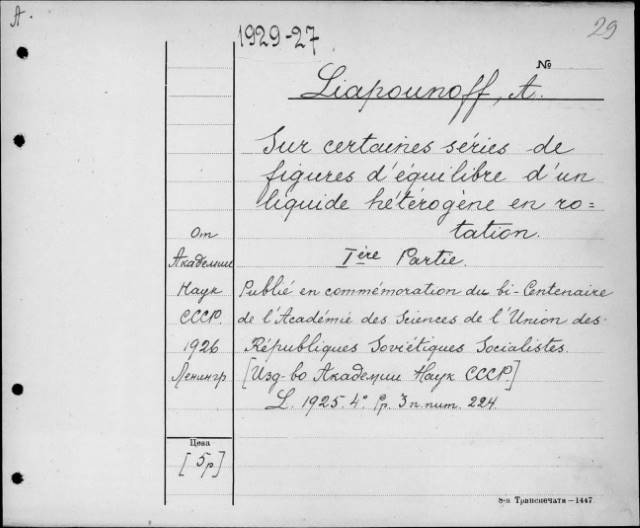 A
1929-27
29
№
Liapounoff, A.
Sur certaines séries de
figures d'équilibre d'un
liquide hétérogène en ro=
tation.
Ière Partie.
Publié en commémoration du bi-Centenaire
de l'Académie des Sciences de l'Union des
Républiques Soviétiques Socialistes.
[Изд-во Академии Наук СССР.]
L. 1925. 4° 3 n. num. 224.
От
Академии
Наук
СССР.
1926
Ленингр
Цена
[5р]
Транспечати—1447